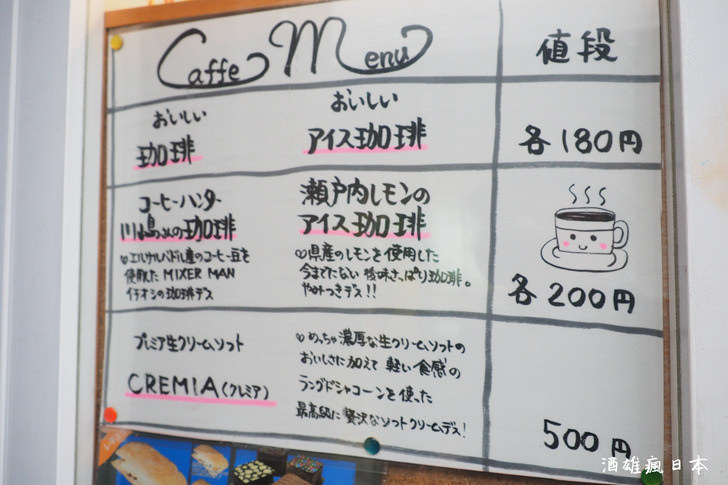 Caffe Menu
値段
おいしい
珈琲
おいしい
アイス珈琲
各180円
コーヒーハンター
川島さんの珈琲
♡エルサルバドル産のコーヒー豆を
使用した MIXER MAN
イチオシの珈琲デス
瀬戸内レモンの
アイス珈琲
♡県産のレモンを使用した
今までにない 後味さっぱり珈琲。
やみつきデス!!
各200円
プレミア生クリームソフト
CREMIA(クレミア)
♡めっちゃ濃厚な生クリームソフトの
おいしさに加えて 軽い食感の
ラングドシャコーンを使った
最高級に贅沢なソフトクリームデス!
500円
酒雄瘋日本